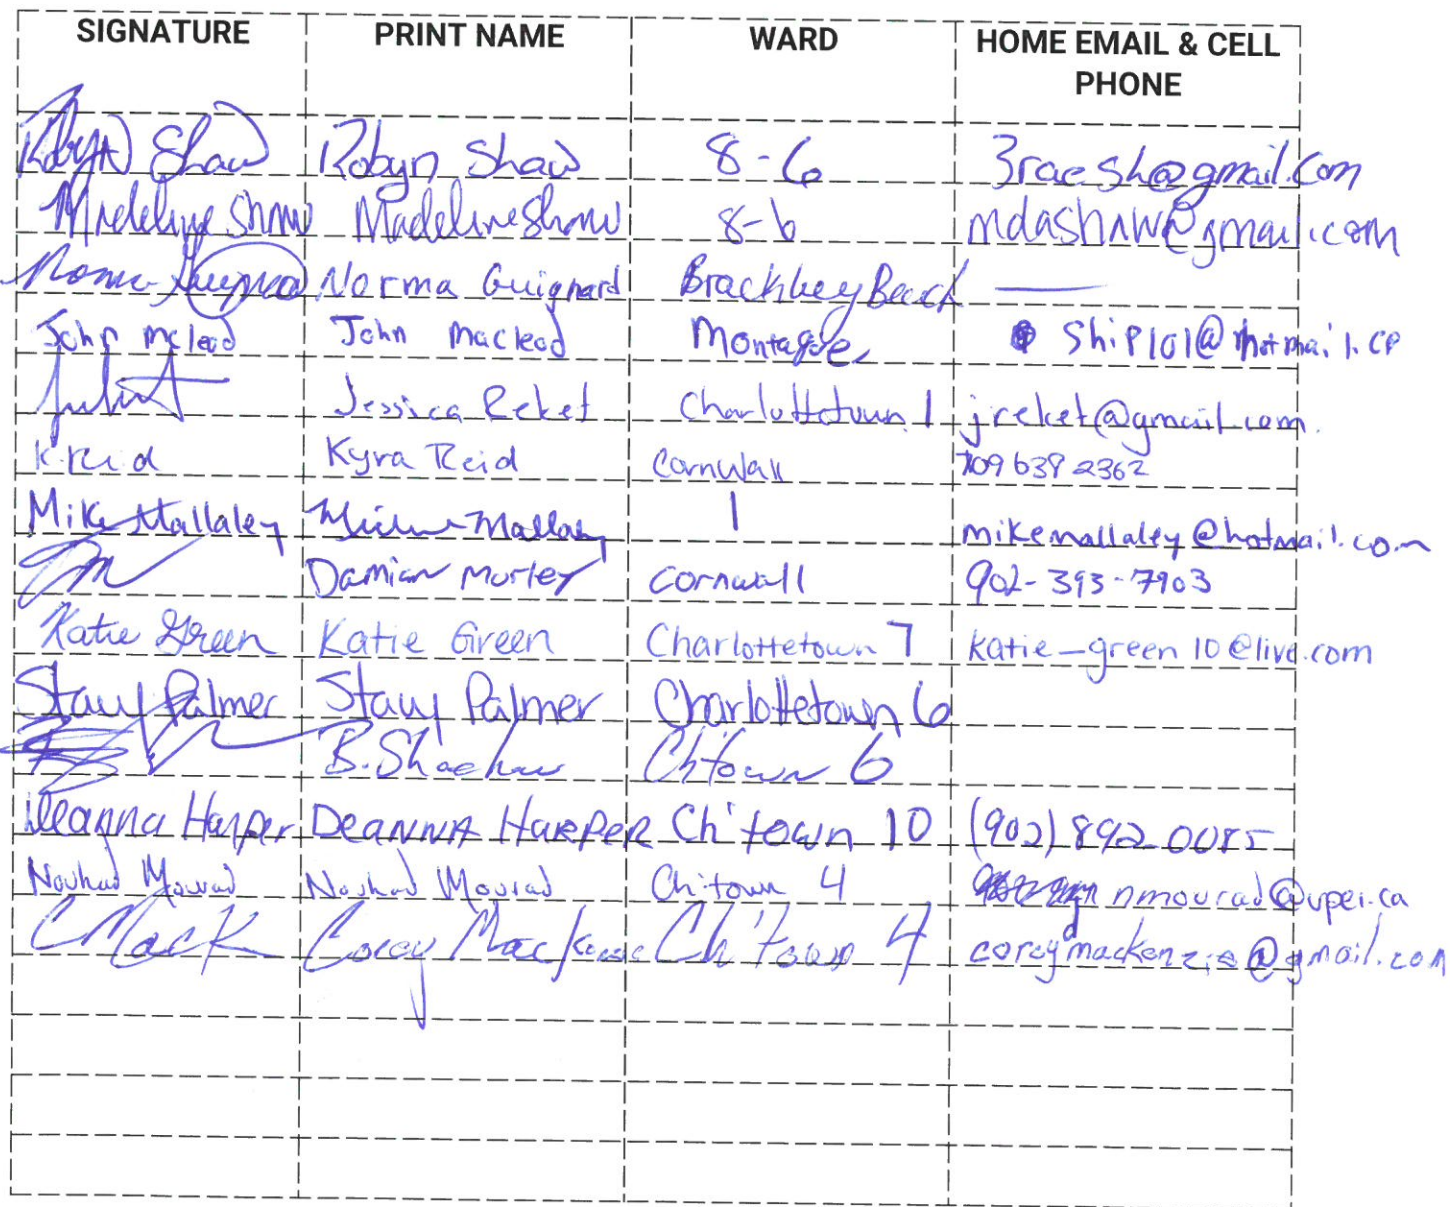 SIGNATURE PRINT NAME WARD HOME EMAIL & CELL
PHONE
Robyn Shaw Robyn Shaw 8-6 3raesh@gmail.com
Madeline Shaw Madeline Shaw 8-6 mdashaw@gmail.com
Norma Guignard Brackley Beach
John Mcleod John Macleod Montague ship101@hotmail.ca
Jessica Reket Charlottetown 1 jreket@gmail.com
K. Reid Kyra Reid Cornwall 709 638 2362
Mike Mallaley Mallaley 1 mikemallaley@hotmail.com
Damian Murley Cornwall 902-393-7903
Katie Green Katie Green Charlottetown 7 katie_green10@live.com
Stacy Palmer Stacy Palmer Charlottetown 6
B. Ch'town 6
Deanna Harper DEANNA HARPER Ch'town 10 (902) 892-0085
Nouhad Mourad Nouhad Mourad Ch'town 4 nmourad@upei.ca
C Mack Corey MacKenzie Ch'town 4 coreymackenzie@gmail.com